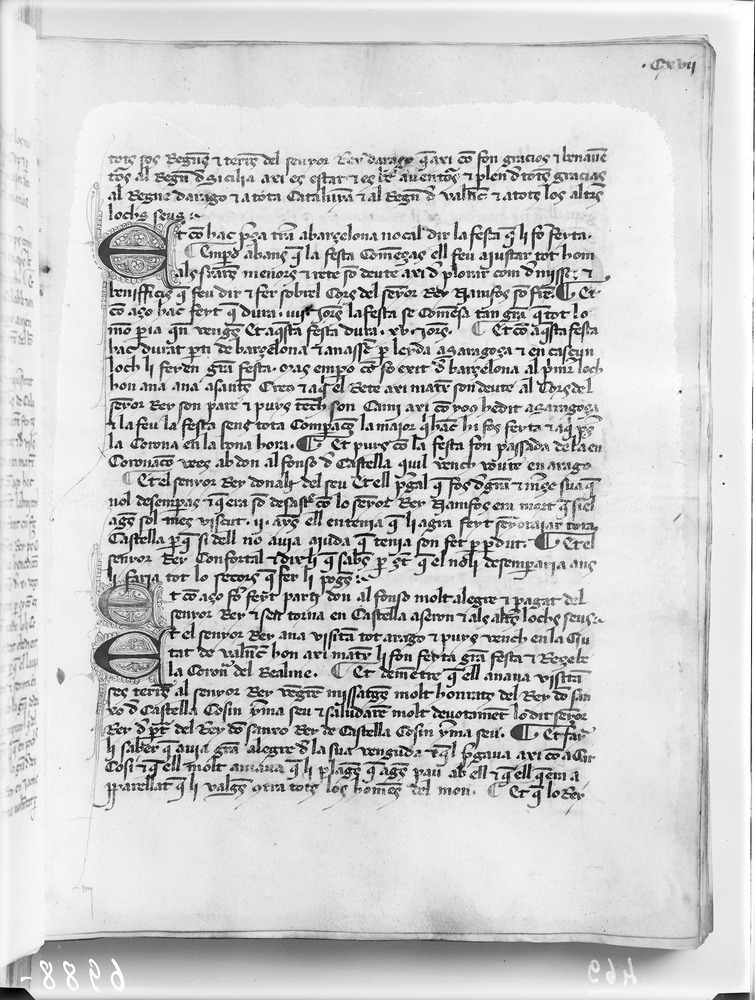 · Cxvij
tots sos Regnes ⁊ terres del senyor Rey darago q̄ axi cō son gracios ⁊ benaue
al Regn̄ d Sicilia axi es estat ⁊ es ⁊ plen d totes gracias
al Regne darago ⁊ a tota Catalunya ⁊ al Regn̄ d Valn̄c ⁊ a tots los altres
lochs seus
Et cō hac p̄sa tr̄ra a barçelona no cal dir la festa q̄ li fo feyta.
Emp̄o abans q̄ la festa Començas ell feu aiustar tot hom
als frar̄es menors ⁊ rete so deute axi d plorar com d misses ⁊
beniffficis q̄ feu dir ⁊ fer sobrel Cors del senyor Rey Namfos so frar̄e. Et
cō aço hac feyt q̄ dura jorns la festa se Comensa tan grā q̄ tot lo
mo p̄ria qn̄ vengues Et aq̄sta festa dura .xv. jorns. Et cō aq̄sta festa
hac durat p̄ti de barçelona ⁊ anassē p̄ leyda a Saragoça ⁊ en cascun
loch li feyen grā festa. cō so exit d barçelona al p̄mer loch
hon ana ana a Creus ⁊ aq̄ ell Rete axi matex son deute al Cors del
senyor Rey son pare ⁊ puys tench son Cami axi cō vos he dit a Saragoça
⁊ la feu la festa sens tota Comparacō la maior q̄ hac hi fos feyta ⁊ aq̄ p̄s
la Corona en la bona hora. Et puys cō la festa fon passada de la en
Coronacō vench ab don alfonso d Castella qui vench en arago
Et el senyor Rey donali del seu Et ell p̄gal q̄ fos d grā ⁊ m̄rce sua q̄
vol desemparas ⁊ q̄ era so desastre cō lo senyor Rey Namfos era mort q̄ si el
agues sol mes viscut .ii. anys ell en tenia q̄ li agra feyt senyoraiar tota
Castella p̄ q̄ si dell no auia aiuda q̄ tenia son fet p̄ p̄dut. Et el
senyor Rey Confortal ⁊ dix li q̄ sabes p̄ q̄ el no li desempararia ans
li faria tot lo secors q̄ fer li pogues
Et cō aço fo feyt parti don alfonso molt alegre ⁊ pagat del
senyor Rey ⁊ sen torna en Castella a Seron ⁊ als altres lochs seus
Et el senyor Rey ana visitā tot arago ⁊ puys vench en la Ciu
tat de Valn̄c hon axi matex li fon feyta grā festa ⁊ Rebebe
la Corona del Realme. Et dementre q̄ ell anaua visitā
ses terres al senyor Rey vengrē missatges molt honrats del Rey do san
xo d Castella Cosin jerma seu ⁊ saludarē molt deuotament lo dit senyor
Rey d p̄t del Rey do sanxo Rey de Castella Cosin jerma seu. Et faer
li saber q̄ auia grā alegre d la sua venguda ⁊ q̄l p̄gaua axi cō a Car
Cosi ⁊ q̄ ell molt amaua q̄ li plagues q̄ agues pau ab ell ⁊ q̄ ell q̄ era a
parellat q̄ li valgues contra tots los homes del mon. Et q̄ lo Rey
6988-
469